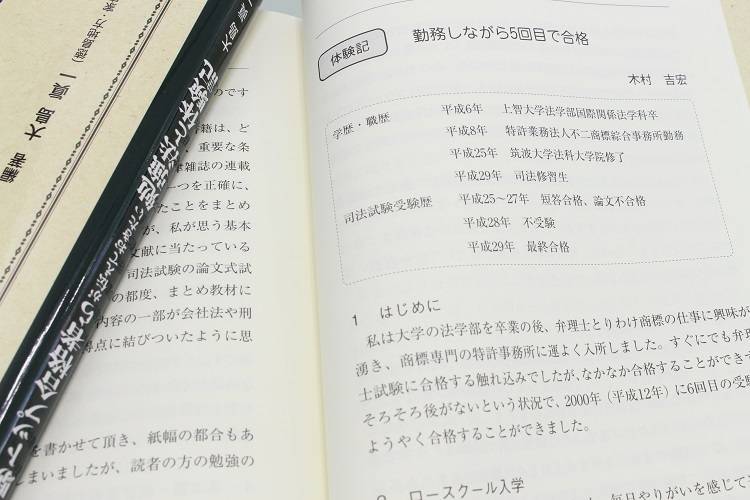 体験記
勤務しながら5回目で合格
木村 吉宏
学歴・職歴 平成6年 上智大学法学部国際関係法学科卒
平成8年 特許業務法人不二商標綜合事務所勤務
平成25年 筑波大学法科大学院修了
平成29年 司法修習生
司法試験受験歴 平成25～27年 短答合格、論文不合格
平成28年 不受験
平成29年 最終合格
1 はじめに
私は大学の法学部を卒業の後、弁理士とりわけ商標の仕事に興味が
湧き、商標専門の特許事務所に運よく入所しました。すぐにでも弁理
士試験に合格する触れ込みでしたが、なかなか合格することができず
そろそろ後がないという状況で、2000年（平成12年）に6回目の受験
ようやく合格することができました。
ロースクール入学
毎日やりがいを感じて
のです
書籍は、ど
重要な条
雑誌の連載
一つを正確に、
たことをまとめ
が、私が思う基本
文献に当たっている
司法試験の論文式試
の都度、まとめ教材に
内容の一部が会社法や刑
得点に結びついたように思
を書かせて頂き、紙幅の都合もあ
しまいましたが、読者の方の勉強の
編著 大島 眞一
トップ合格者
勉強法と体験記
大島 眞一